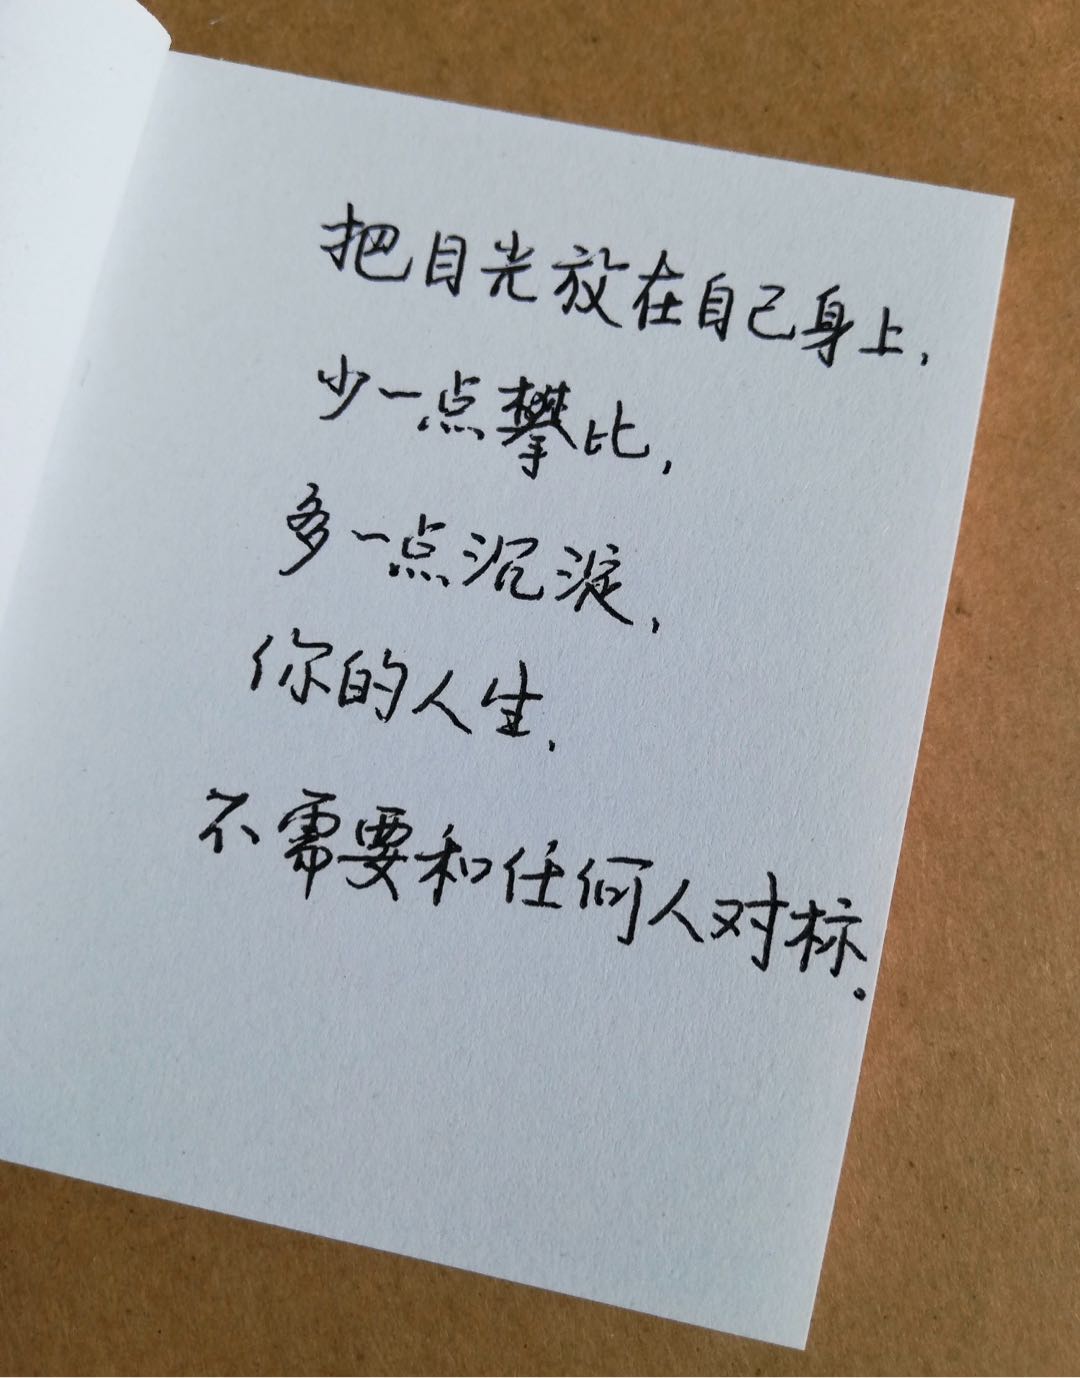 把目光放在自己身上,
少一点攀比,
多一点沉淀,
你的人生,
不需要和任何人对标.